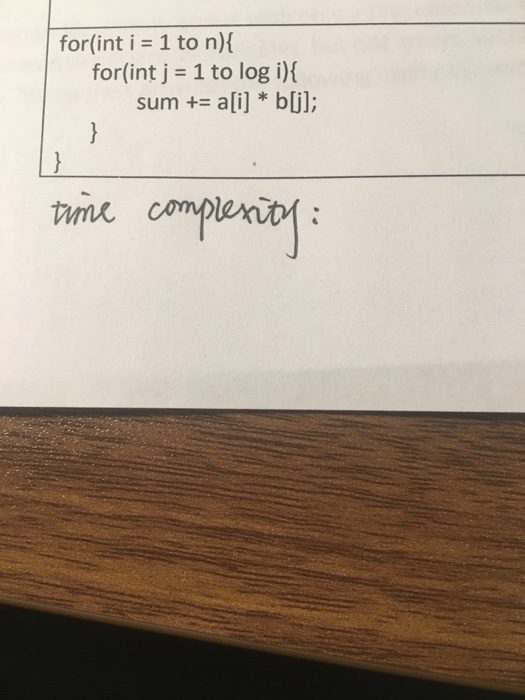 for(int i = 1 to n){
for(int j = 1 to log i){
sum += a[i] * b[j];
}
}
time complexity: